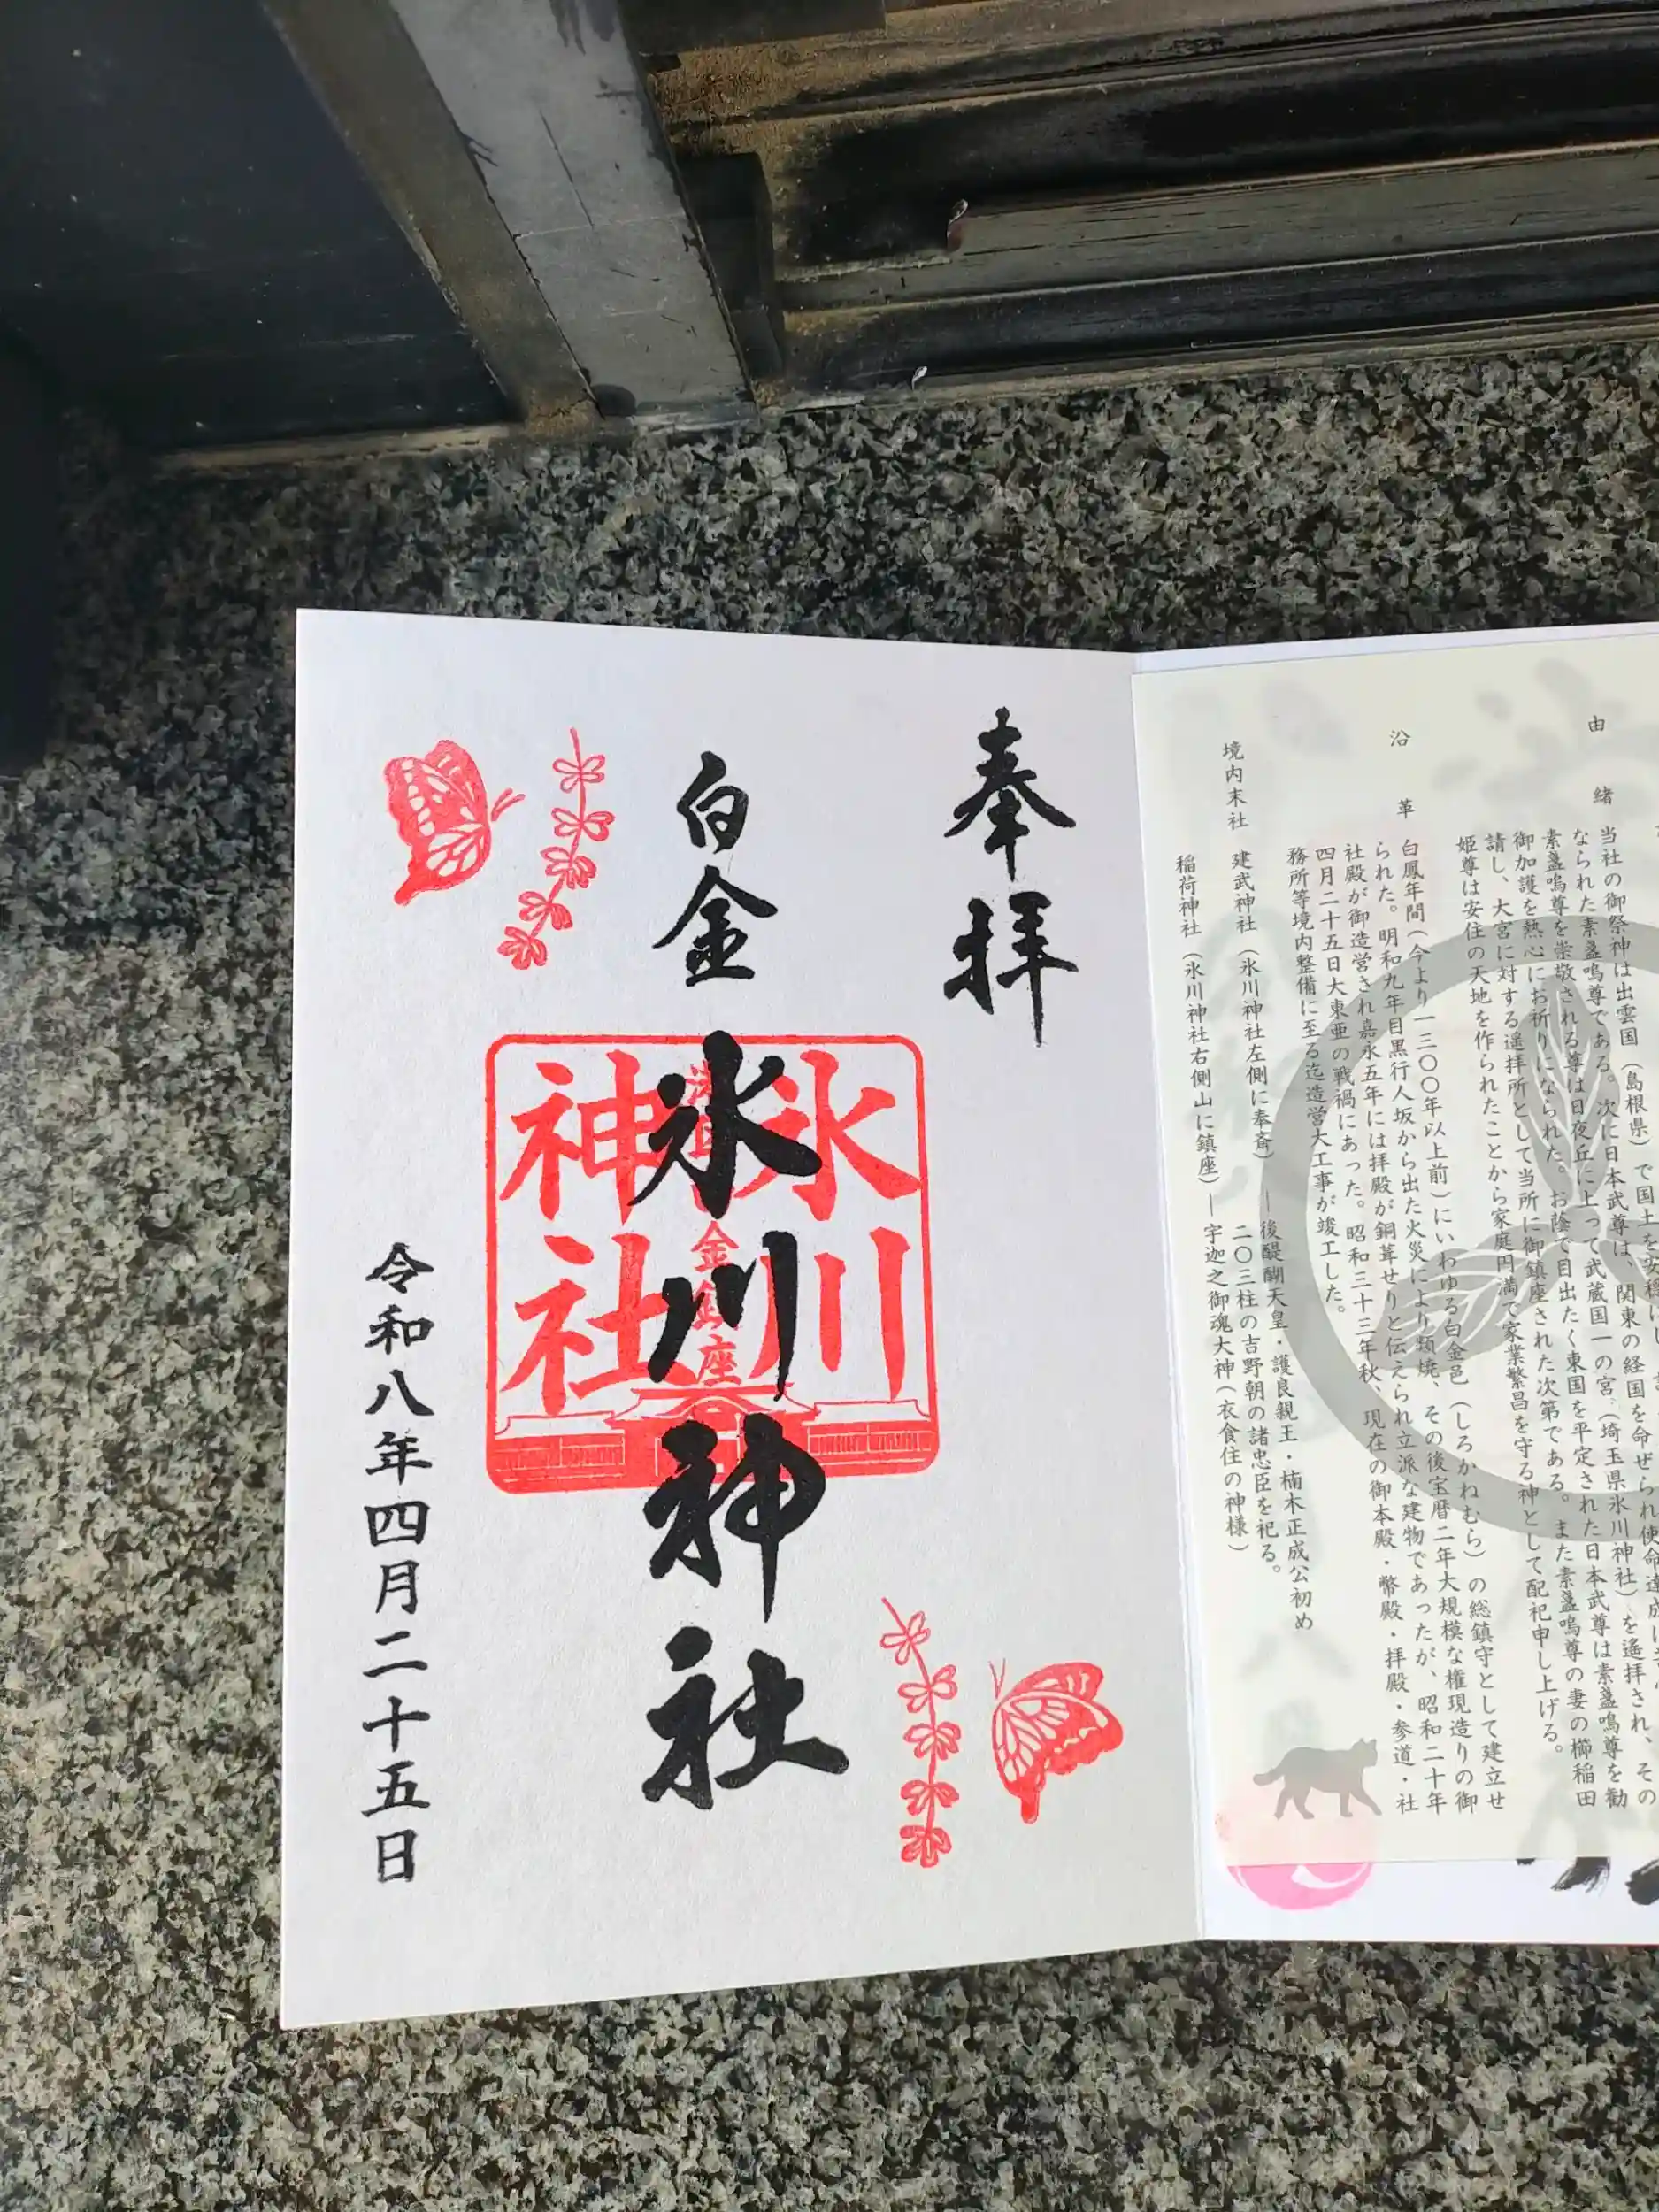 奉拝
白金氷川神社
氷川
神社
金
座
令和八年四月二十五日
由緒
当社の御祭神は出雲国(島根県)で国土を安穏に
なられた素盞嗚尊である。次に日本武尊は、関東の経国を命ぜられ使命達成に
素盞嗚尊を崇敬される尊は日夜丘に上って武蔵国一の宮(埼玉県氷川神社)を遙拝され、その
御加護を熱心にお祈りになられた。お蔭で目出たく東国を平定された日本武尊は素盞嗚尊を勧
請し、大宮に対する遥拝所として当所に御鎮座された次第である。また素盞嗚尊の妻の櫛稲田
姫尊は安住の天地を作られたことから家庭円満で家業繁昌を守る神として配祀申し上げる。
沿革
白鳳年間(今より一三〇〇年以上前)にいわゆる白金邑(しろかねむら)の総鎮守として建立せ
られた。明和九年目黒行人坂から出た火災により類焼、その後宝暦二年大規模な権現造りの御
社殿が御造営され嘉永五年には拝殿が銅葺せりと伝えられ立派な建物であったが、昭和二十年
四月二十五日大東亜の戦禍にあった。昭和三十三年秋、現在の御本殿・幣殿・拝殿・参道・社
務所等境内整備に至る迄造営大工事が竣工した。
境内末社
建武神社(氷川神社左側に奉斎)―後醍醐天皇・護良親王・楠木正成公初め
二〇三柱の吉野朝の諸忠臣を祀る。
稲荷神社(氷川神社右側山に鎮座)―宇迦之御魂大神(衣食住の神様)